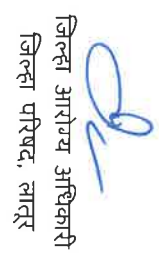 जिल्हा आरोग्य अधिकारी
जिल्हा परिषद, लातूर